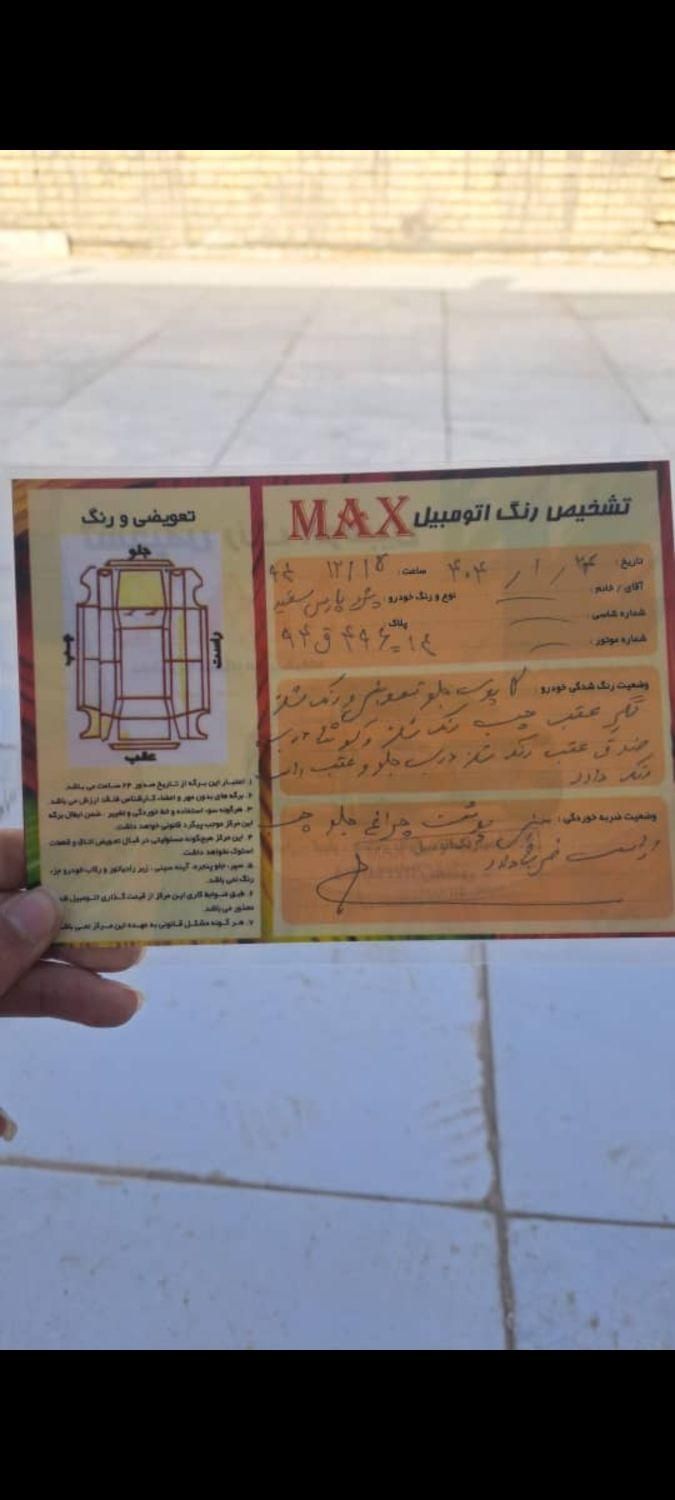 تشخیص رنگ اتومبیل MAX
تاریخ: ۲۴ / ۱ / ۴۰۴ ساعت: ۱۲/۱۵
آقای / خانم: نوع و رنگ خودرو: پژو پارس سفید
شماره شاسی: پلاک:
شماره موتور:
وضعیت رنگ شدگی خودرو: کاپوت جلو تعویض و رنگ شده
گلگیر عقب چپ رنگ شده
صندوق عقب رنگ شده درب جلو و عقب راست
رنگ دارد
وضعیت ضربه خوردگی: سینی پشت چراغ جلو چپ
و راست ضربه دارد
تعویضی و رنگ
جلو
چپ
راست
عقب
۱. اعتبار این برگه از تاریخ صدور ۲۴ ساعت می باشد.
۲. برگه های بدون مهر و امضاء کارشناس فاقد ارزش می باشد.
۳. هرگونه سوء استفاده و خط خوردگی و تغییر، ضمن ابطال برگه
این مرکز موجب پیگرد قانونی خواهد داشت.
۴. این مرکز هیچگونه مسئولیتی در قبال تعویض اتاق و قطعات
استوک نخواهد داشت.
۵. سپر، جلو پنجره، آینه سینی، زیر رادیاتور و رکاب خودرو جزء
رنگ نمی باشد.
۶. طبق ضوابط کاری این مرکز از قیمت گذاری اتومبیل
معذور می باشد.
۷. هر گونه مشکل قانونی به عهده این مرکز نمی باشد